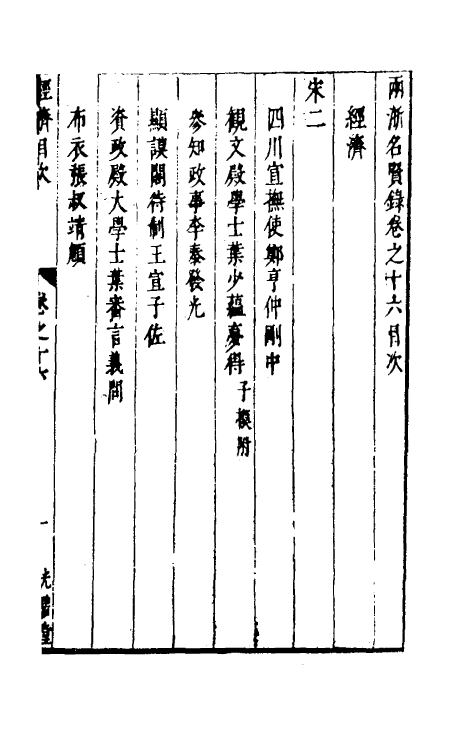 兩浙名賢錄卷之十六目次
經濟
宋二
四川宣撫使鄭亨仲剛中
觀文殿學士葉少蘊夢得 子模附
參知政事李泰發光
顯謨閣待制王宣子佐
資政殿大學士葉審言義問
布衣張叔靖顧
經濟目次 卷之十六 一 光碧堂